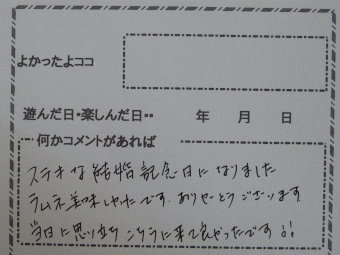 よかったよココ
遊んだ日・楽しんだ日・・　　年　月　日
何かコメントがあれば
ステキな結婚記念日になりました
ラムネ美味しかったです。ありがとうございます
当日に思い立ちこちらに来て良かったです!!